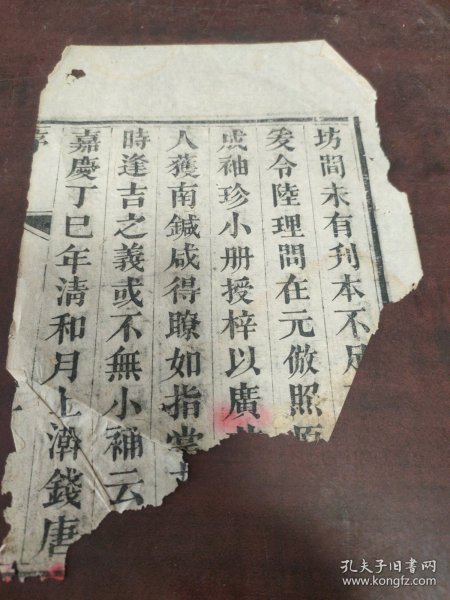 坊間未有刋本不
爰令陸理問在元倣照
成袖珍小册授梓以廣
人獲南鍼咸得瞭如指掌
時逢吉之義或不無小補云
嘉慶丁巳年清和月上澣錢唐
孔夫子旧书网
www.kongfz.com